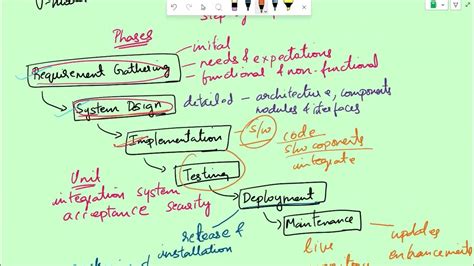 V-model
step by
Phases
Requirement Gathering
- initial
- needs & expectations
- functional & non-functional
System Design
detailed - architecture, components
modules & interfaces
Implementation
s/w
code
s/w coponents
integrate
Testing
Unit
integration system
acceptance security
Deployment
release &
installation
Maintenance
live
updates
enhancements